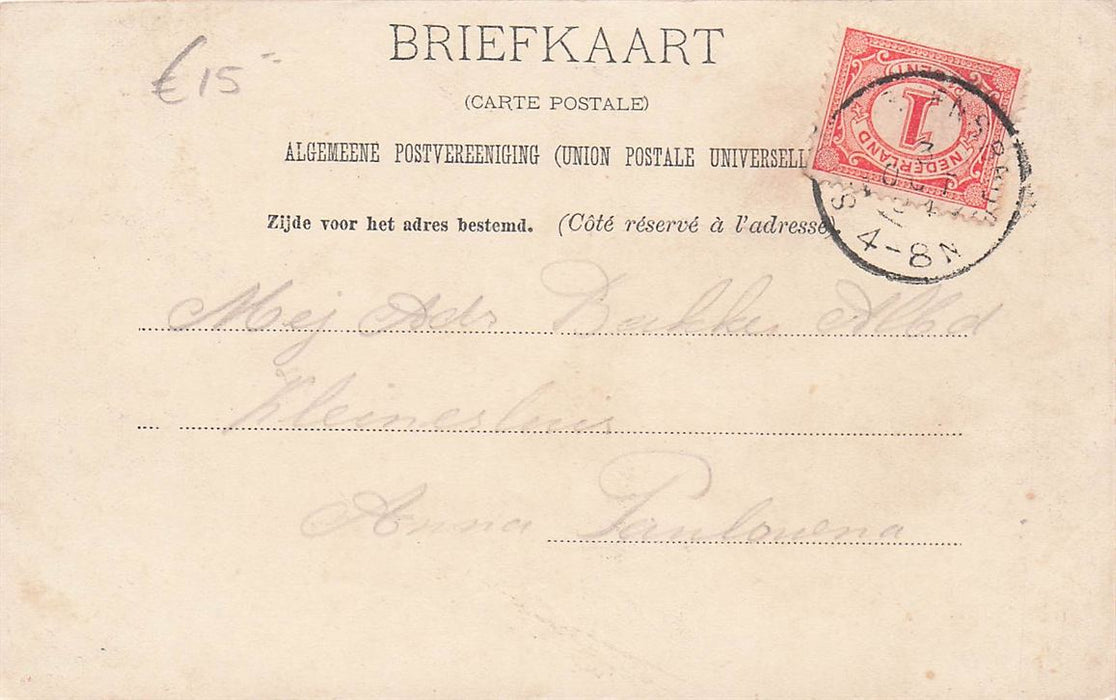 € 15 -
BRIEFKAART
(CARTE POSTALE)
ALGEMEENE POSTVEREENIGING (UNION POSTALE UNIVERSELL
Zijde voor het adres bestemd. (Côté réservé à l'adresse)
1
CENT
NEDERLAND
3
OCT
4-8N
Mej Adr Bakker
Kleinesluis
Anna Paulowna